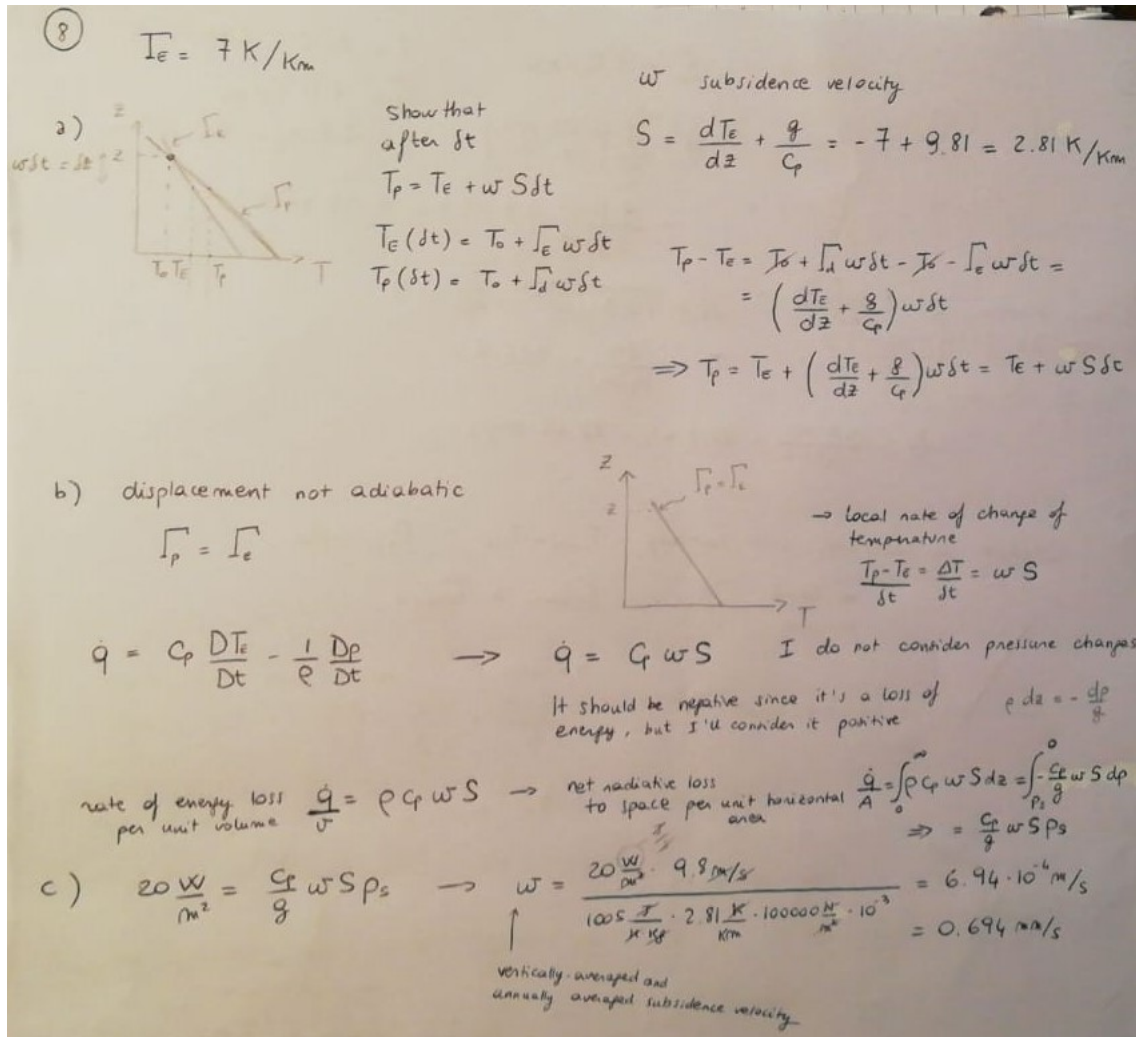 8
Γ_E = 7 K/Km
w subsidence velocity
a)
z
Γ_E
wδt = δz
z
Γ_p
T_0 T_E T_p T
Show that
after δt
T_p = T_E + w S δt
T_E (δt) = T_0 + Γ_E w δt
T_p (δt) = T_0 + Γ_d w δt
S = dT_E/dz + g/C_p = - 7 + 9.81 = 2.81 K/Km
T_p - T_E = T_0 + Γ_d w δt - T_0 - Γ_E w δt =
= (dT_E/dz + g/C_p) w δt
=> T_p = T_E + (dT_E/dz + g/C_p) w δt = T_E + w S δt
b) displacement not adiabatic
Γ_p = Γ_e
z
z
Γ_p = Γ_e
T
→ local rate of change of
temperature
(T_p - T_E)/δt = ΔT/δt = w S
q̇ = C_p DT_E/Dt - 1/ρ Dp/Dt → q̇ = C_p w S I do not consider pressure changes
It should be negative since it's a loss of
energy, but I'll consider it positive
ρ dz = - dp/g
rate of energy loss
per unit volume
q̇/v = ρ C_p w S →
net radiative loss
to space per unit horizontal
area
q̇/A = ∫_0^∞ ρ C_p w S dz = ∫_{p_s}^0 - C_p/g w S dp
=> = C_p/g w S p_s
c) 20 W/m² = C_p/g w S p_s → w = (20 W/m² · 9.8 m/s)/(1005 J/(K Kg) · 2.81 K/Km · 100000 N/m² · 10^-3) = 6.94 · 10^-4 m/s
= 0.694 mm/s
vertically-averaged and
annually averaged subsidence velocity